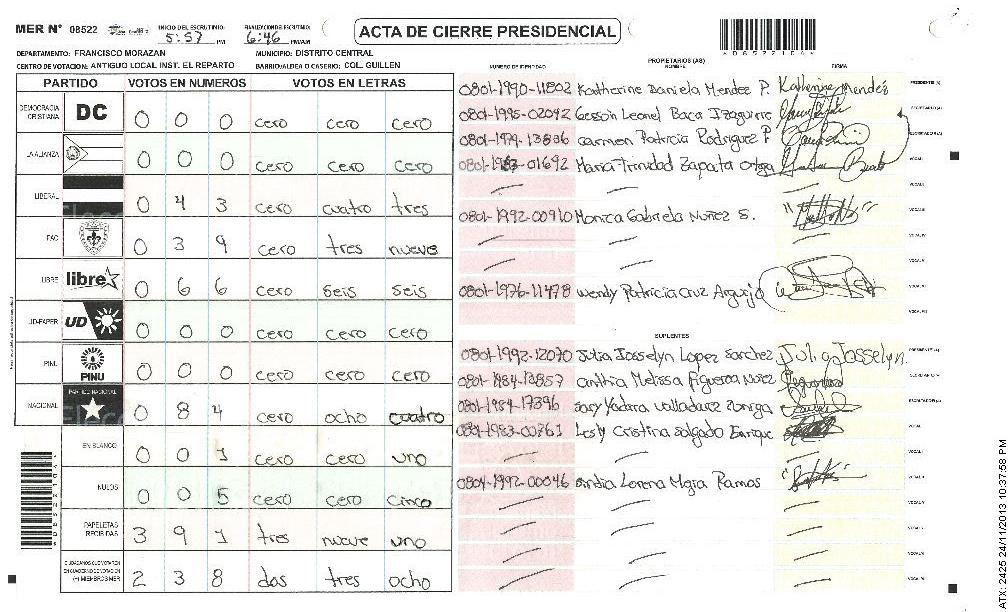 MER N° 08522 INICIO DEL ESCRUTINIO: 5:57 PM FINALIZACION DEL ESCRUTINIO: 6:46 PM/AM
ACTA DE CIERRE PRESIDENCIAL
DEPARTAMENTO: FRANCISCO MORAZAN MUNICIPIO: DISTRITO CENTRAL
CENTRO DE VOTACION: ANTIGUO LOCAL INST. EL REPARTO BARRIO/ALDEA O CASERIO: COL. GUILLEN
PARTIDO VOTOS EN NUMEROS VOTOS EN LETRAS
DEMOCRACIA CRISTIANA DC 0 0 0 cero cero cero
LA ALIANZA 0 0 0 cero cero cero
LIBERAL 0 4 3 cero cuatro tres
PAC 0 3 9 cero tres nueve
LIBRE libre 0 6 6 cero seis seis
UD-FAPER UD 0 0 0 cero cero cero
PINU PINU 0 0 0 cero cero cero
NACIONAL PARTIDO NACIONAL 0 8 4 cero ocho cuatro
EN BLANCO 0 0 1 cero cero uno
NULOS 0 0 5 cero cero cinco
PAPELETAS RECIBIDAS 3 9 1 tres nueve uno
CIUDADANOS QUE VOTARON EN CUADERNO DE VOTACION (+) MIEMBROS MER 2 3 8 dos tres ocho
PROPIETARIOS (AS)
NUMERO DE IDENTIDAD NOMBRE FIRMA
0801-1990-11802 Katherine Daniela Mendez P. Katherine Mendés PRESIDENTE (A)
0801-1995-02042 Gesson Leonel Baca Izaguirre SECRETARIO (A)
0801-1979-13836 Carmen Patricia Rodriguez P ESCRUTADOR (A)
0801-1983-01692 Maria Trinidad Zapata Ortega VOCAL I
VOCAL II
0801-1992-00910 Monica Gabriela Nuñez S. VOCAL III
VOCAL IV
VOCAL V
0801-1976-11478 Wendy Patricia Cruz Argujo VOCAL VI
VOCAL VII
SUPLENTES
0801-1992-12070 Julia Josselyn Lopez Sanchez Julia Josselyn. PRESIDENTE (A)
0801-1984-13857 Cinthia Melissa Figueroa Nuñez SECRETARIO (A)
0801-1984-17396 Sary Yadira Valladarez Zuniga ESCRUTADOR (A)
0801-1983-00761 Lesly Cristina Salgado Enrique VOCAL I
VOCAL II
0801-1992-00046 Lorena Mejia Ramos VOCAL III
VOCAL IV
VOCAL V
VOCAL VI
VOCAL VII
ATX: 2425 24/11/2013 10:37:58 PM